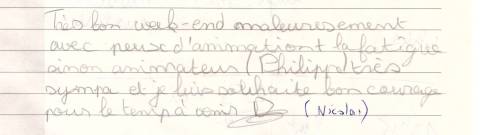 Très bon week-end maleuresement
avec peux d'animation + la fatigue
sinon animateur (Philipp) très
sympa et je lui souhaite bon courage
pour le temp à venir
(Nicolas)